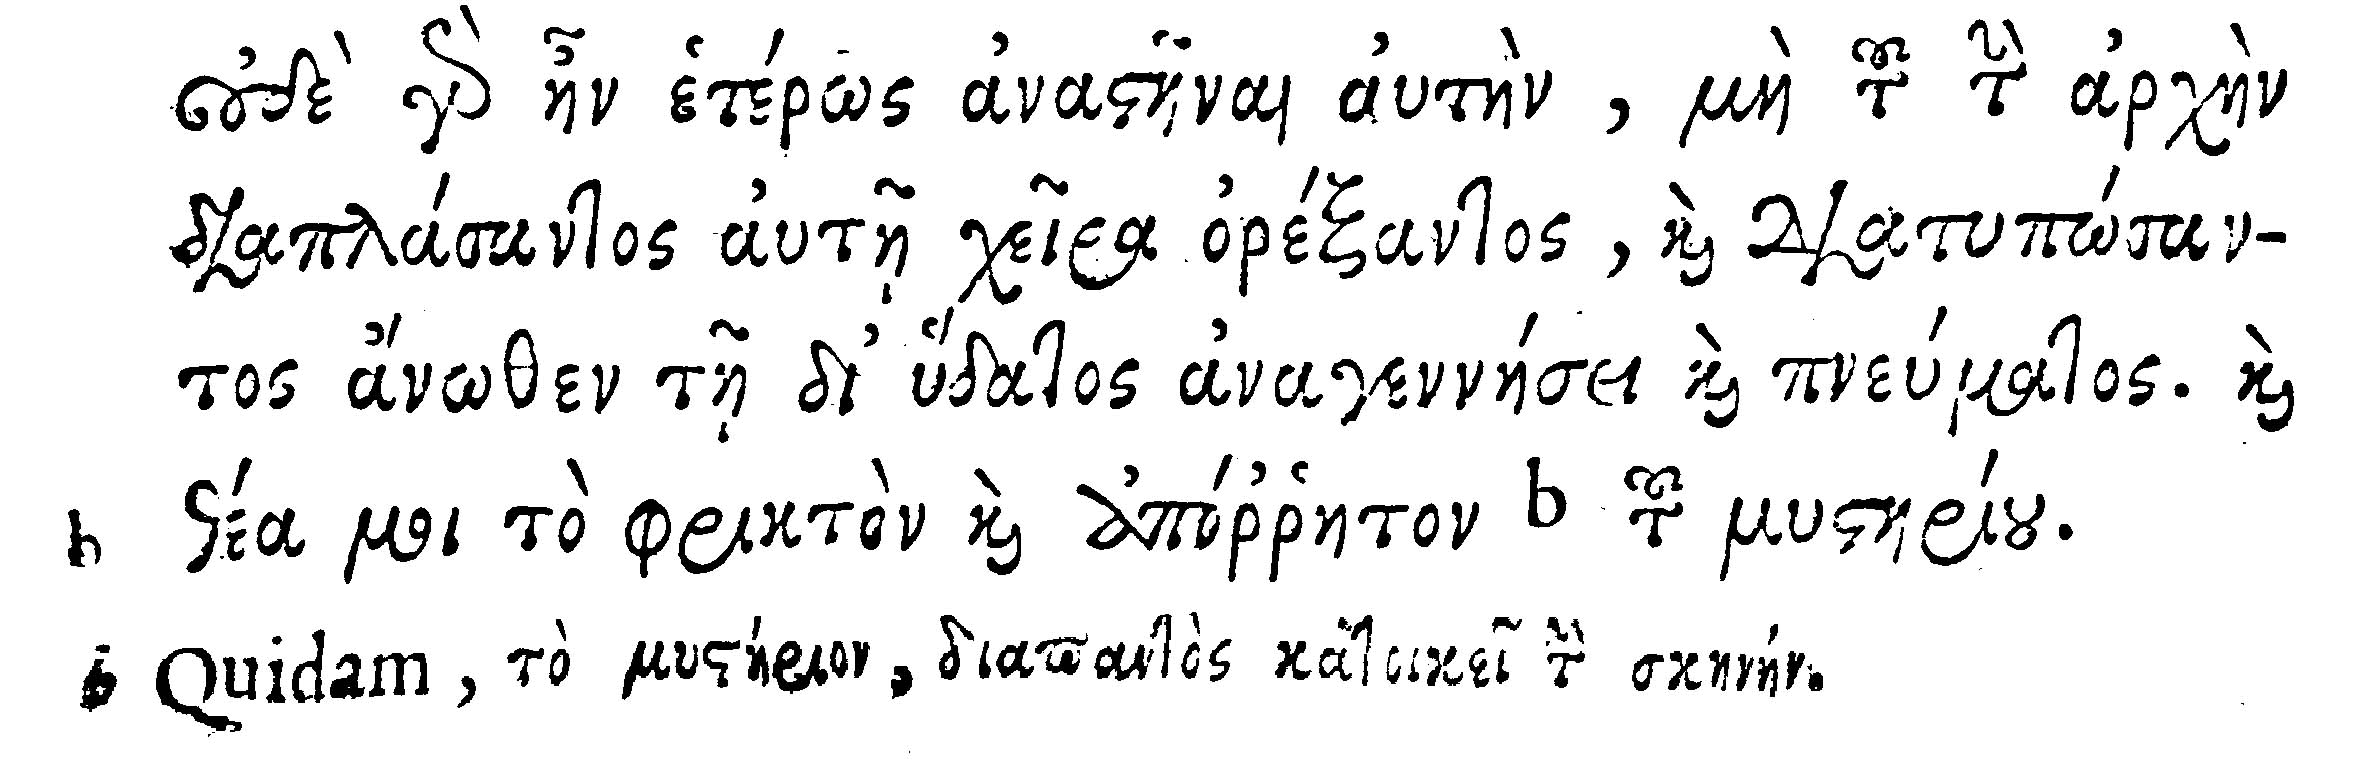 οὐδὲ γὰρ ἦν ἑτέρως ἀναςῆναι ἀυτὴν, μὴ τοῦ τὴν ἀρχὴν
διαπλάσαντος ἀυτῇ χεῖρα ὀρέξαντος, καὶ διατυπώσαν-
τος ἄνωθεν τῇ δι' ὕδατος ἀναγεννήσει καὶ πνεύματος. καὶ
h θέα μοι τὸ φρικτὸν καὶ ἀπόῤῥητον b τοῦ μυςηρίου.
b Quidam, τὸ μυςήριον, διαπαντὸς κατοικεῖ τὴν σκηνήν.